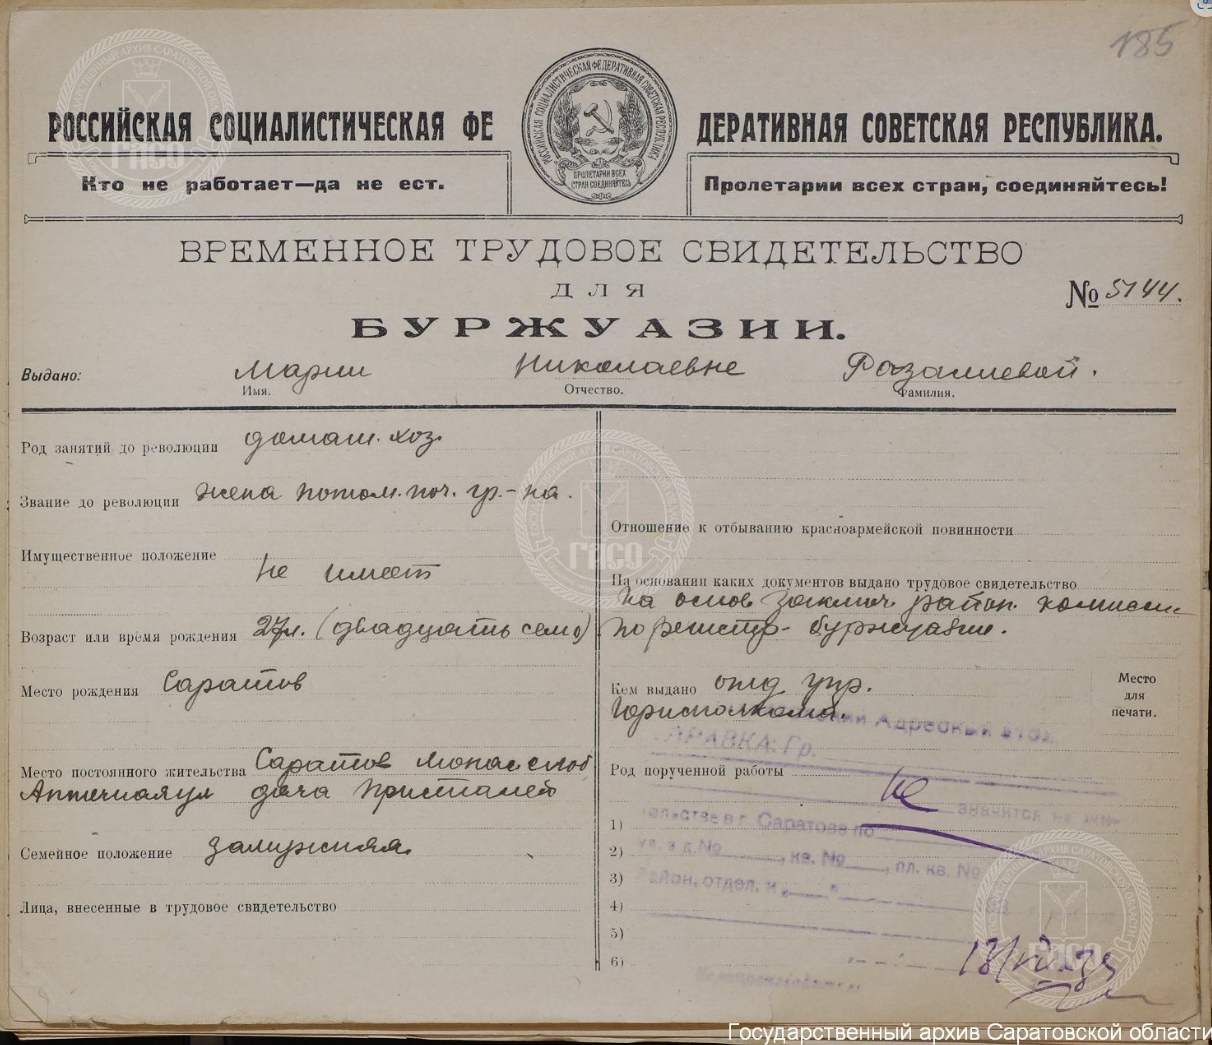 185
РОССИЙСКАЯ СОЦИАЛИСТИЧЕСКАЯ ФЕ ДЕРАТИВНАЯ СОВЕТСКАЯ РЕСПУБЛИКА.
РОССИЙСКАЯ СОЦИАЛИСТИЧЕСКАЯ ФЕДЕРАТИВНАЯ СОВЕТСКАЯ РЕСПУБЛИКА
ПРОЛЕТАРИИ ВСЕХ
СТРАН СОЕДИНЯЙТЕСЬ
Кто не работает—да не ест.
Пролетарии всех стран, соединяйтесь!
ВРЕМЕННОЕ ТРУДОВОЕ СВИДЕТЕЛЬСТВО
ДЛЯ
№ 5144.
БУРЖУАЗИИ.
Выдано: Марии Николаевне Фазалиевой.
Имя. Отчество. Фамилия.
Род занятий до революции домаш. хоз.
Звание до революции жена потом. поч. гр.-на.
Имущественное положение
не имеет
Возраст или время рождения 27 л. (двадцать семь)
Место рождения Саратов
Место постоянного жительства Саратов Монас слоб
Аптечная ул дача
Семейное положение замужняя
Лица, внесенные в трудовое свидетельство
Отношение к отбыванию красноармейской повинности
На основании каких документов выдано трудовое свидетельство
На основ заключ. район. комиссии
по регистр. буржуазии.
Кем выдано отд упр.
Горисполкома.
Место
для
печати.
Адресный стол
СПРАВКА: Гр.
Род порученной работы
не значится на жи-
тельстве в г. Саратове по
ул. в д. № , кв. № , пл. кв. №
Район, отдел. и
1)
2)
3)
4)
5)
6)
ГАСО
ГАСО
ГАСО
Государственный архив Саратовской области